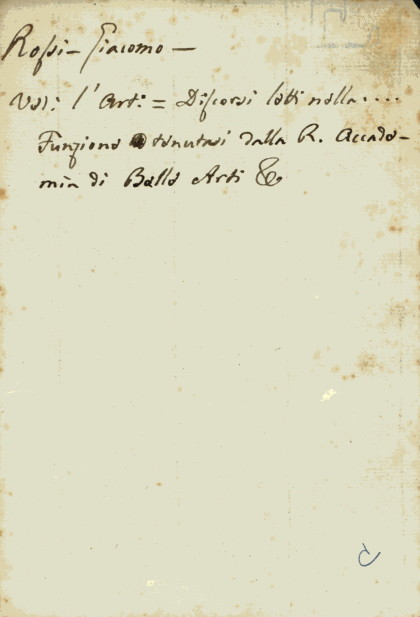 Rossi - Giacomo -
Vedi l'Art: = Discorsi letti nella....
Funzione tenutasi dalla R. Accade-
mia di Belle Arti &